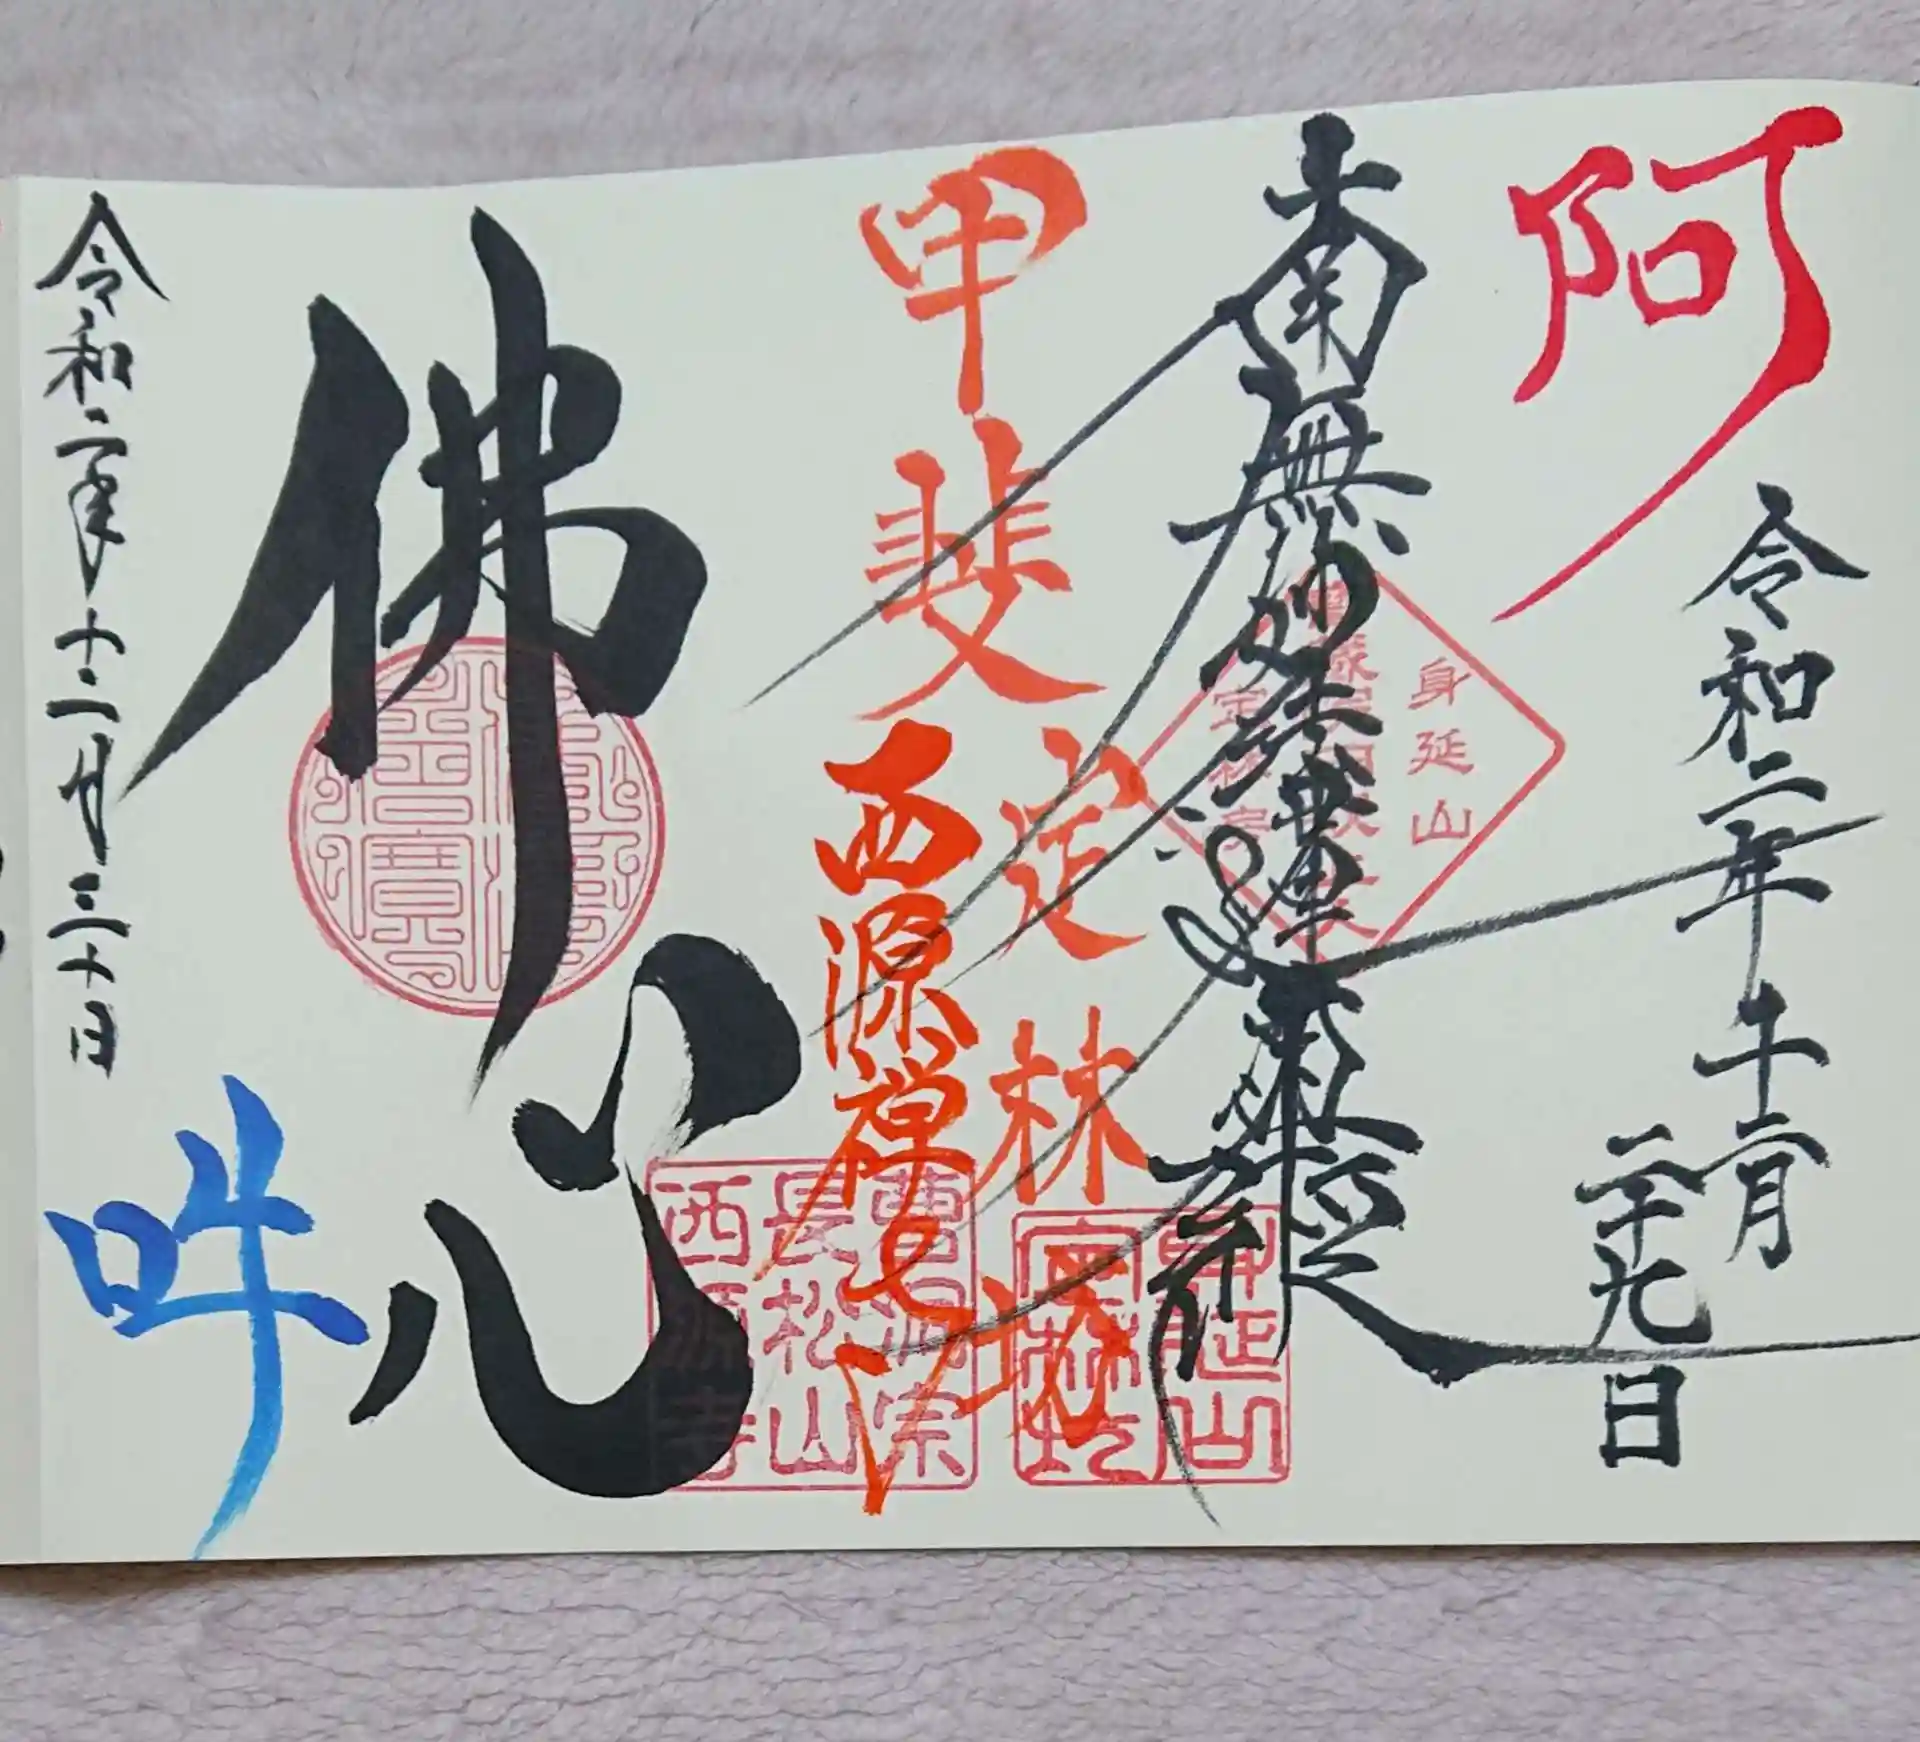 阿
令和二年十二月
二十九日
南無妙法蓮華経
身延山
定林坊
甲斐
西源禅寺
佛心
佛法僧寶
曹洞宗
長松山
西源寺
令和二年十二月三十日
吽